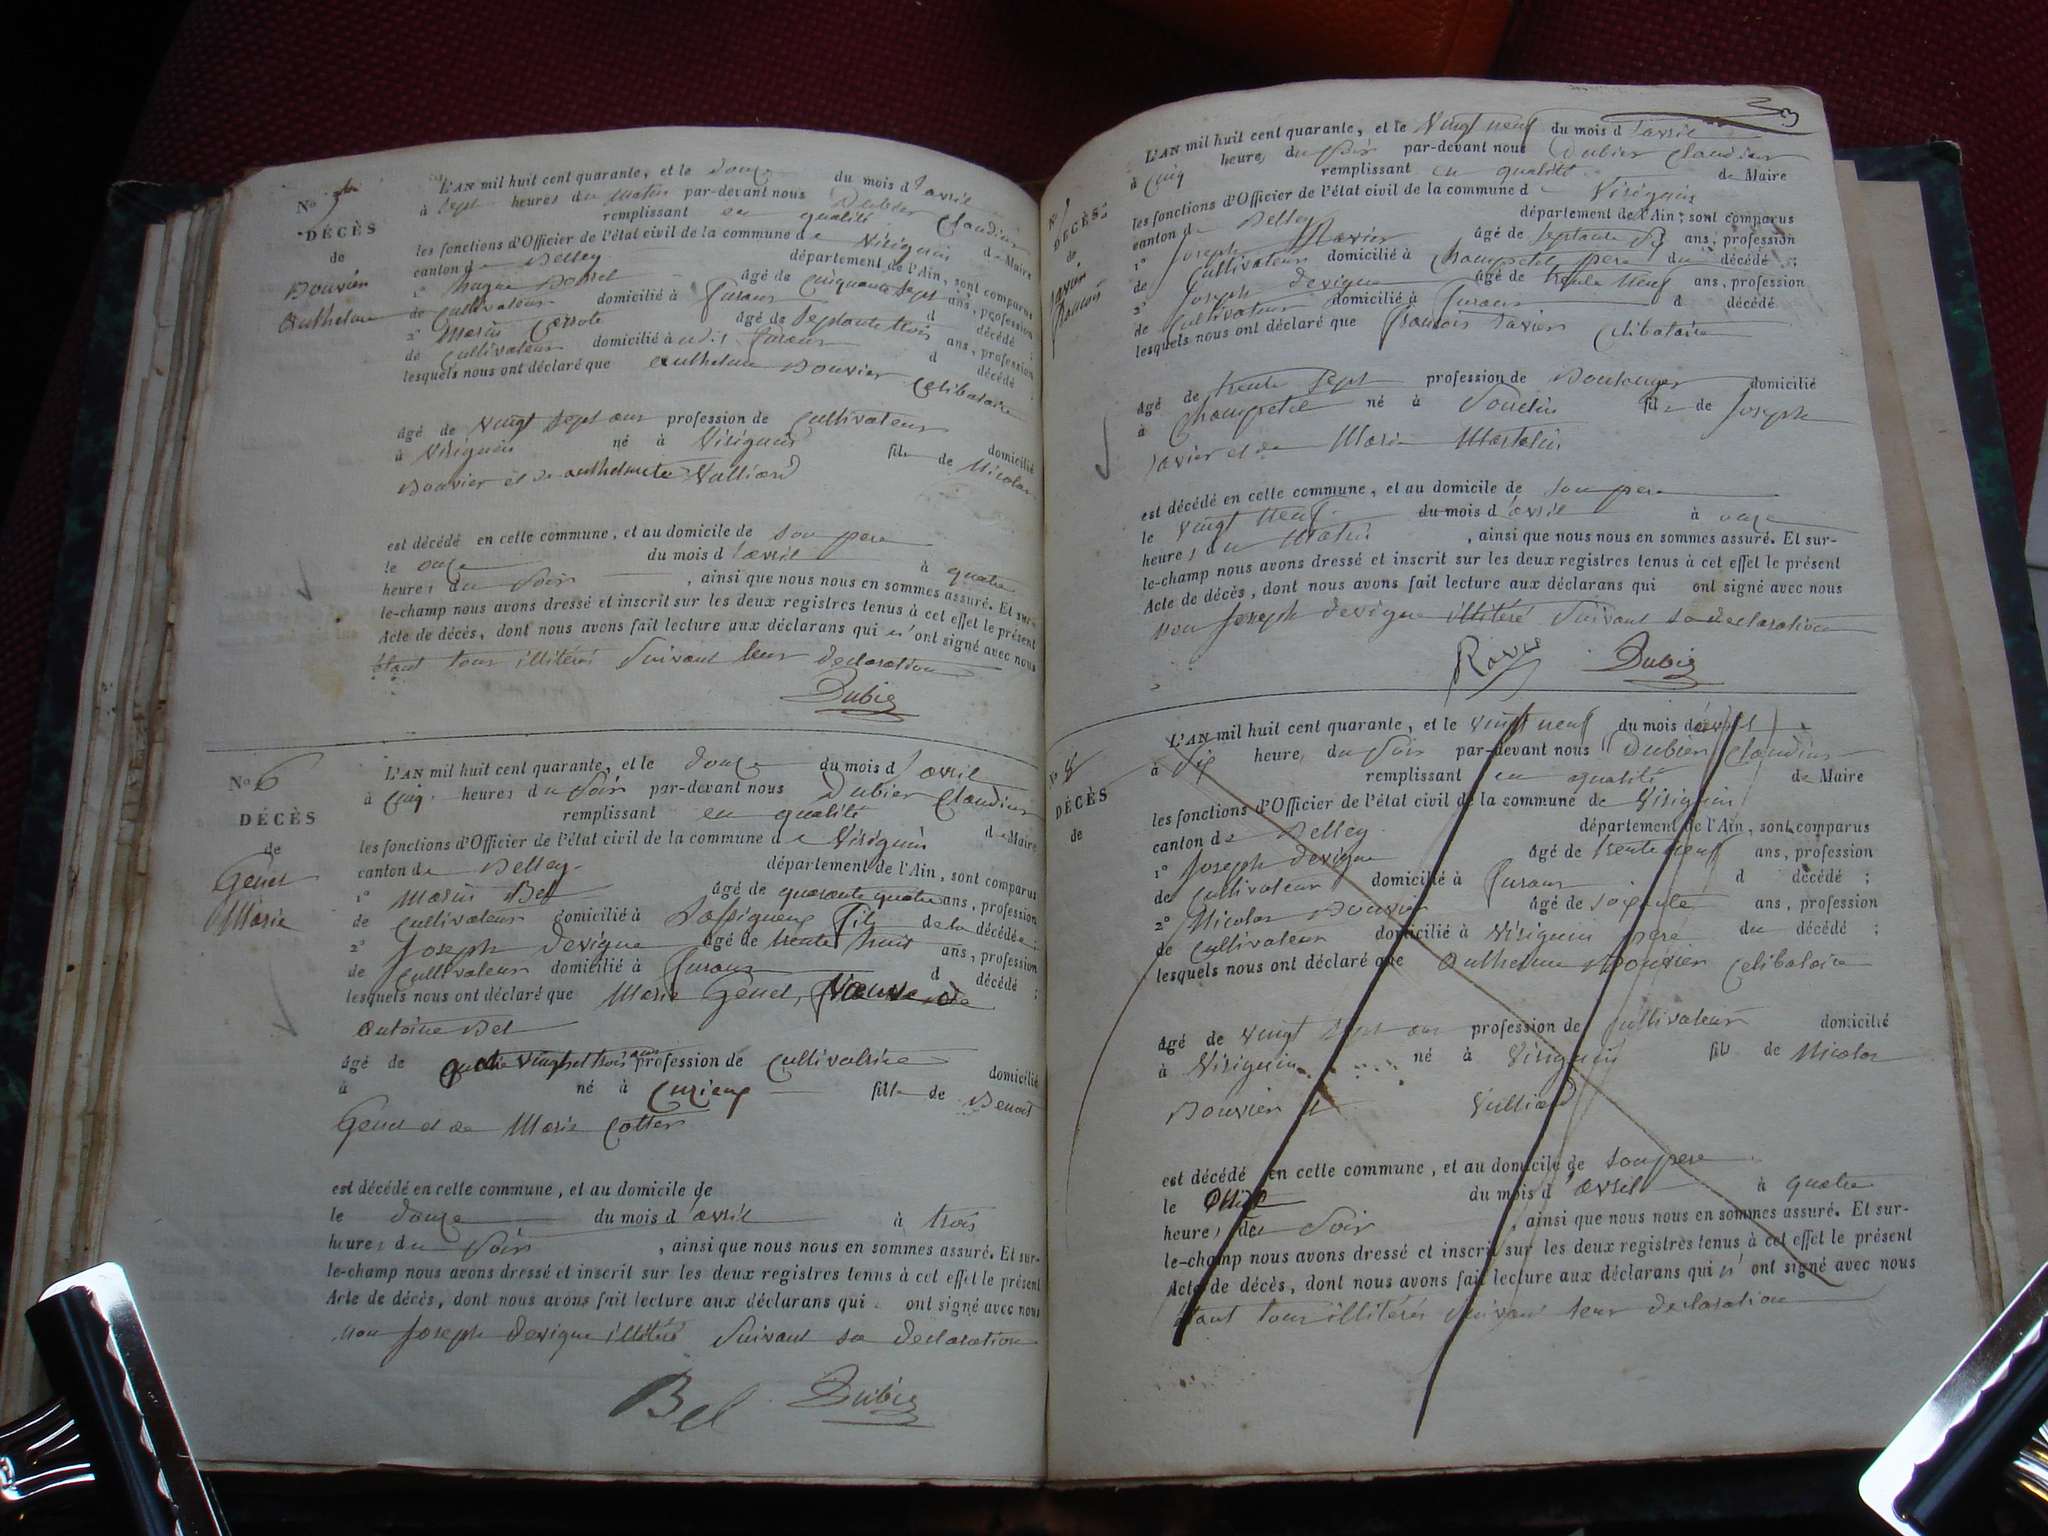 No 5
DÉCÈS
de
Bouvier
Anthelme
L'AN mil huit cent quarante, et le douze du mois d'avril
à sept heures du matin par-devant nous Dubier Claudius
remplissant en qualité de Maire
les fonctions d'Officier de l'état civil de la commune de Virignin
canton de Belley département de l'Ain, sont comparus
1° âgé de cinquante sept ans, profession
de cultivateur domicilié à d décédé ;
2° Marin âgé de septante trois ans, profession
de cultivateur domicilié à d décédé
lesquels nous ont déclaré que Anthelme Bouvier Celibataire
âgé de vingt sept ans profession de Cultivateur domicilié
à Virignin né à Virignin fils de Nicolas
Bouvier et de anthelmette Vulliard
est décédé en cette commune, et au domicile de son pere
le onze du mois d'avril à quatre
heures du soir , ainsi que nous nous en sommes assuré. Et sur-
le-champ nous avons dressé et inscrit sur les deux registres tenus à cet effet le présent
Acte de décès, dont nous avons fait lecture aux déclarans qui n'ont signé avec nous
étant tous illitérés suivant leur declaration
Dubier
No 6
DÉCÈS
de
Genet
Marie
L'AN mil huit cent quarante, et le douze du mois d'avril
à cinq heures du soir par-devant nous Dubier Claudius
remplissant en qualité de Maire
les fonctions d'Officier de l'état civil de la commune de Virignin
canton de Belley département de l'Ain, sont comparus
1° Marin Bel âgé de quarante quatre ans, profession
de Cultivateur domicilié à fils de la décédée ;
2° Joseph Devigne âgé de trente huit ans, profession
de Cultivateur domicilié à d décédé ;
lesquels nous ont déclaré que Marie Genet, Veuve de
Antoine Bel
âgé de quatre vingt et trois ans profession de Cultivatrice domicilié
à né à Curieux fille de Benoit
Genet et de Marie Cottin
est décédé en cette commune, et au domicile de
le douze du mois d'avril à trois
heures du soir , ainsi que nous nous en sommes assuré. Et sur-
le-champ nous avons dressé et inscrit sur les deux registres tenus à cet effet le présent
Acte de décès, dont nous avons fait lecture aux déclarans qui ont signé avec nous
non Joseph Devigne illitéré suivant sa declaration
Bel Dubier
No 7
DÉCÈS
de
L'AN mil huit cent quarante, et le vingt neuf du mois d'avril
à cinq heure, du soir par-devant nous Dubier Claudius
remplissant en qualité de Maire
les fonctions d'Officier de l'état civil de la commune de Virignin
canton de Belley département de l'Ain, sont comparus
1° Joseph Ravier âgé de septante six ans, profession
de Cultivateur domicilié à pere du décédé ;
2° Joseph Devigne âgé de trente neuf ans, profession
de Cultivateur domicilié à d décédé
lesquels nous ont déclaré que François Ravier Celibataire
âgé de trente sept profession de Boulanger domicilié
à né à fils de Joseph
Ravier et de Marie
est décédé en cette commune, et au domicile de son pere
le vingt neuf du mois d'avril à onze
heures du matin , ainsi que nous nous en sommes assuré. Et sur-
le-champ nous avons dressé et inscrit sur les deux registres tenus à cet effet le présent
Acte de décès, dont nous avons fait lecture aux déclarans qui ont signé avec nous
non Joseph Devigne illitéré suivant sa declaration
Ravier Dubier
No 8
DÉCÈS
de
L'AN mil huit cent quarante, et le vingt neuf du mois d'avril
à six heure, du soir par-devant nous Dubier Claudius
remplissant en qualité de Maire
les fonctions d'Officier de l'état civil de la commune de Virignin
canton de Belley département de l'Ain, sont comparus
1° Joseph Devigne âgé de trente neuf ans, profession
de Cultivateur domicilié à d décédé ;
2° Nicolas Bouvier âgé de soixante ans, profession
de Cultivateur domicilié à Virignin pere du décédé ;
lesquels nous ont déclaré que Anthelme Bouvier Celibataire
âgé de vingt sept ans profession de Cultivateur domicilié
à Virignin né à Virignin fils de Nicolas
Bouvier et Vulliard
est décédé en cette commune, et au domicile de son pere
le onze du mois d'avril à quatre
heures du soir , ainsi que nous nous en sommes assuré. Et sur-
le-champ nous avons dressé et inscrit sur les deux registres tenus à cet effet le présent
Acte de décès, dont nous avons fait lecture aux déclarans qui n'ont signé avec nous
étant tous illitérés suivant leur declaration